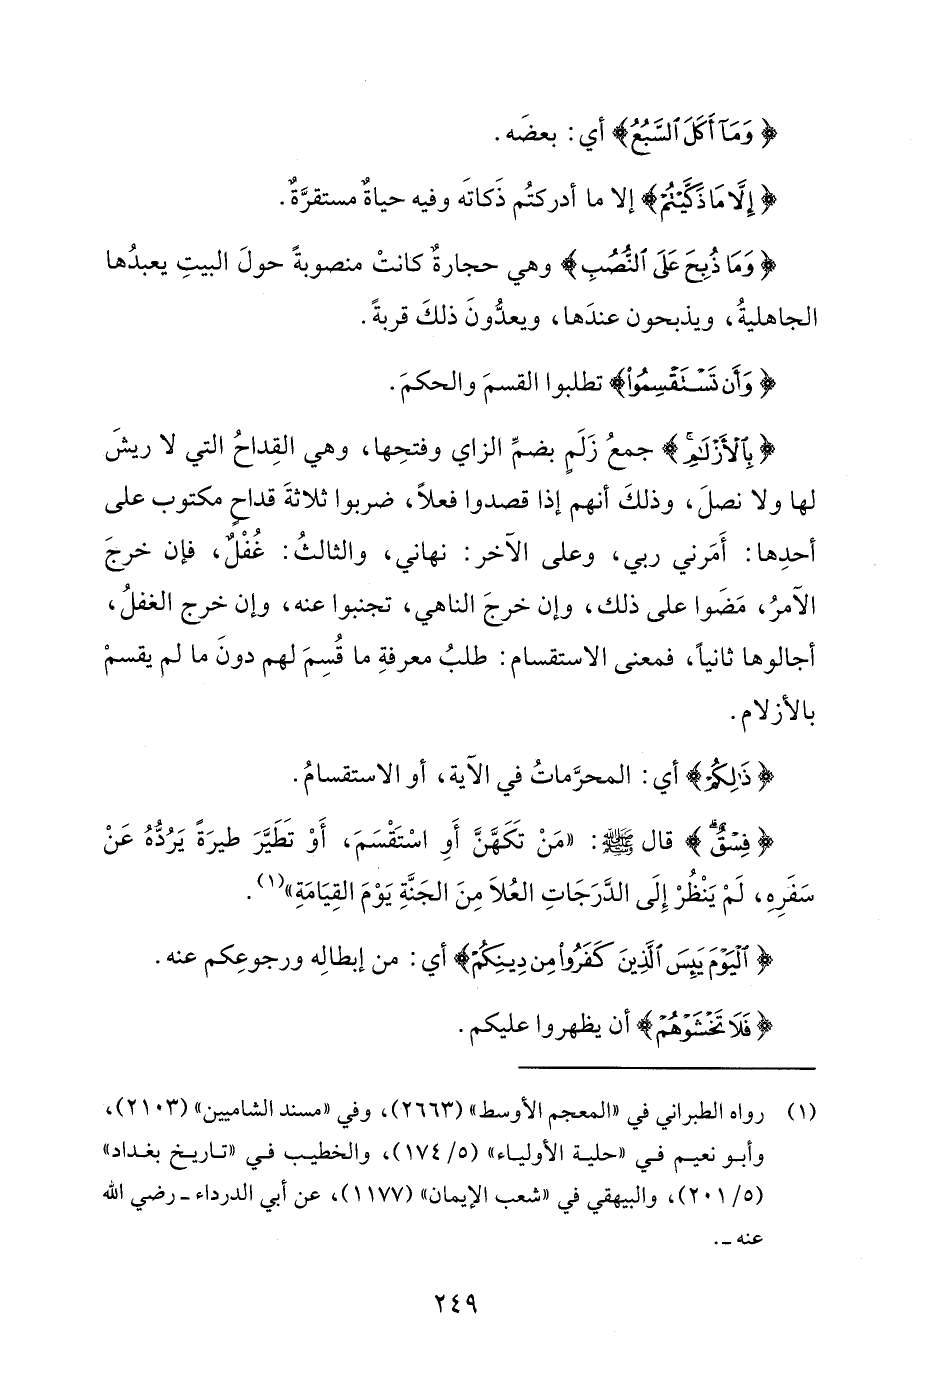 ﴿وَمَآ أَكَلَ ٱلسَّبُعُ﴾ أي: بعضَه.
﴿إِلَّا مَا ذَكَّيْتُمْ﴾ إلا ما أدركتُم ذَكاتَه وفيه حياةٌ مستقرَّةٌ.
﴿وَمَا ذُبِحَ عَلَى ٱلنُّصُبِ﴾ وهي حجارةٌ كانتْ منصوبةً حولَ البيتِ يعبدُها
الجاهليةُ، ويذبحون عندَها، ويعدُّونَ ذلكَ قربةً.
﴿وَأَن تَسْتَقْسِمُوا۟﴾ تطلبوا القسمَ والحكمَ.
﴿بِٱلْأَزْلَٰمِ ۚ﴾ جمعُ زَلَمٍ بضمِّ الزاي وفتحِها، وهي القِداحُ التي لا ريشَ
لها ولا نصلَ، وذلكَ أنهم إذا قصدوا فعلاً، ضربوا ثلاثةَ قداحٍ مكتوب على
أحدِها: أَمَرني ربي، وعلى الآخر: نهاني، والثالثُ: غُفْلٌ، فإن خرجَ
الآمرُ، مَضَوا على ذلك، وإن خرجَ الناهي، تجنبوا عنه، وإن خرج الغفلُ،
أجالوها ثانياً، فمعنى الاستقسام: طلبُ معرفةِ ما قُسِمَ لهم دونَ ما لم يقسمْ
بالأزلام.
﴿ذَٰلِكُمْ﴾ أي: المحرَّماتُ في الآية، أو الاستقسامُ.
﴿فِسْقٌ ۗ﴾ قال ﷺ: «مَنْ تَكَهَّنَّ أَوِ اسْتَقْسَمَ، أَوْ تَطَيَّرَ طيرَةً يَرُدُّهُ عَنْ
سَفَرِهِ، لَمْ يَنْظُرْ إِلَى الدَّرَجَاتِ العُلاَ مِنَ الجَنَّةِ يَوْمَ القِيَامَةِ»(١).
﴿ٱلْيَوْمَ يَئِسَ ٱلَّذِينَ كَفَرُوا۟ مِن دِينِكُمْ﴾ أي: من إبطالِه ورجوعِكم عنه.
﴿فَلَا تَخْشَوْهُمْ﴾ أن يظهروا عليكم.
(١) رواه الطبراني في «المعجم الأوسط» (٢٦٦٣)، وفي «مسند الشاميين» (٢١٠٣)،
وأبو نعيم في «حلية الأولياء» (٥/ ١٧٤)، والخطيب في «تاريخ بغداد»
(٥/ ٢٠١)، والبيهقي في «شعب الإيمان» (١١٧٧)، عن أبي الدرداء ـ رضي الله
عنه ـ.
٢٤٩